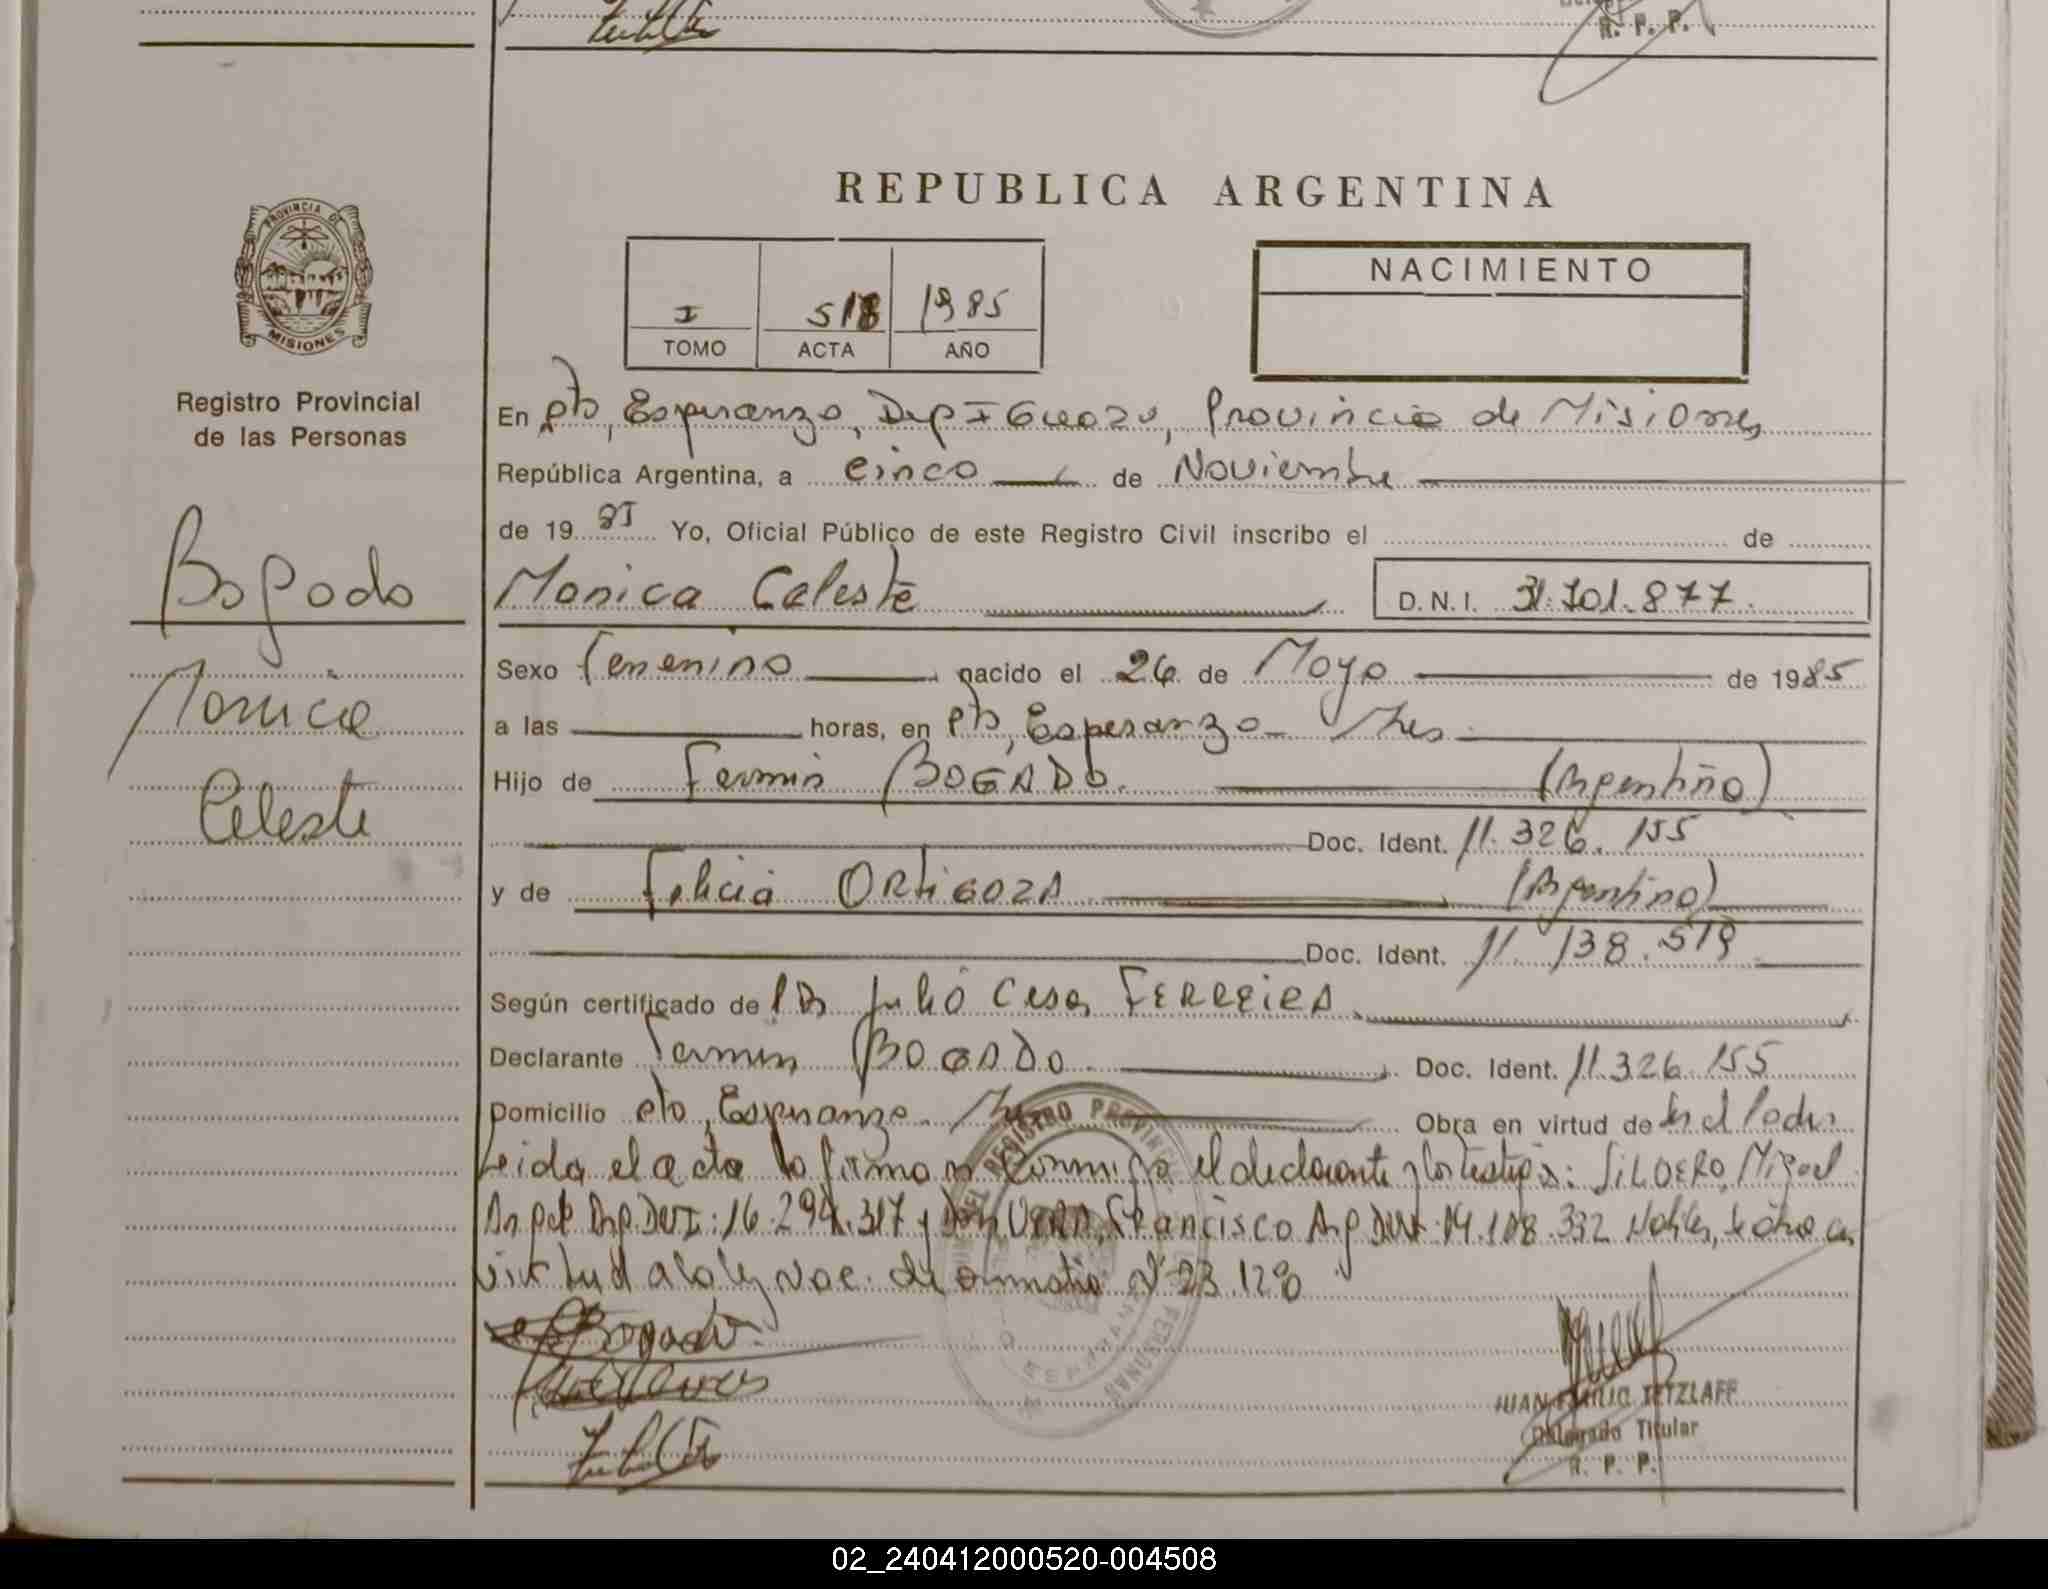 R. P. P.
REPUBLICA ARGENTINA
PROVINCIA DE
MISIONES
Registro Provincial
de las Personas
I 518 1985
TOMO ACTA AÑO
NACIMIENTO
En Pto, Esperanza, Dep Iguazu, Provincia de Misiones
República Argentina, a cinco de Noviembre
de 19 85 Yo, Oficial Público de este Registro Civil inscribo el de
Bogado
Monica
Celeste
Monica Celeste D.N.I. 31.701.877.
Sexo Femenino nacido el 26 de Mayo de 1985
a las horas, en Pto, Esperanza - Mnes.
Hijo de Fermin BOGADO. (Argentino)
Doc. Ident. 11.326.155
y de Felicia ORtiGOZA (Argentina)
Doc. Ident. 11.138.519
Según certificado de Julio Cesar FERREIRA
Declarante Fermin BOGADO Doc. Ident. 11.326.155
Domicilio Pto, Esperanza - Mnes Obra en virtud de
Leida el acta la firman conmigo el declarante y los testigos: Miguel
Angel Arg. DNI: 16.294.317 y Don VERA, Francisco Arg DNI. 14.108.332
virtud a la ley Nac. de amnistia Nº 23.128
Bogado
JUAN EMILIO TETZLAFF
Delegado Titular
R. P. P.
02_240412000520-004508